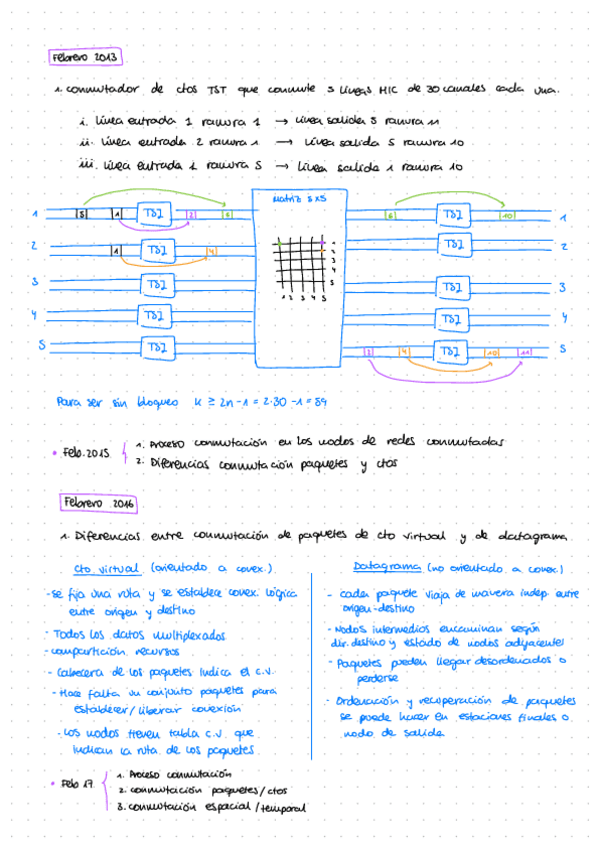 Febrero 2013
1. conmutador de ctos TST que conmute 5 líneas MIC de 30 canales cada una.
i. línea entrada 1 ranura 1 → línea salida 5 ranura 11
ii. línea entrada 2 ranura 1 → línea salida 5 ranura 10
iii. línea entrada 1 ranura 5 → línea salida 1 ranura 10
Matriz 5x5
1 |5| |1| TSI |2| |6| |6| TSI |10| 1
2 |1| TSI |4| TSI 2
3 TSI TSI 3
4 TSI TSI 4
5 TSI |2| |4| TSI |10| |11| 5
1
2
3
4
5
1 2 3 4 5
Para ser sin bloqueo k ≥ 2n-1 = 2·30 -1 = 59
• Feb. 2015
1. Proceso conmutación en los nodos de redes conmutadas
2. Diferencias conmutación paquetes y ctos
Febrero 2016
1. Diferencias entre conmutación de paquetes de cto virtual y de datagrama.
Cto virtual (orientado a conex.)
- Se fija una ruta y se establece conex. lógica
entre origen y destino
- Todos los datos multiplexados
- compartición recursos
- Cabecera de los paquetes indica el c.v.
- Hace falta un conjunto paquetes para
establecer/liberar conexión
- Los nodos tienen tabla c.v. que
indican la ruta de los paquetes.
Datagrama (no orientado a conex.)
- cada paquete viaja de manera indep. entre
origen-destino
- Nodos intermedios encaminan según
dir. destino y estado de nodos adyacentes
- Paquetes pueden llegar desordenados o
perderse
- Ordenación y recuperación de paquetes
se puede hacer en estaciones finales o
nodo de salida
• Feb 17.
1. Proceso conmutación
2. conmutación paquetes/ctos
3. conmutación espacial/temporal